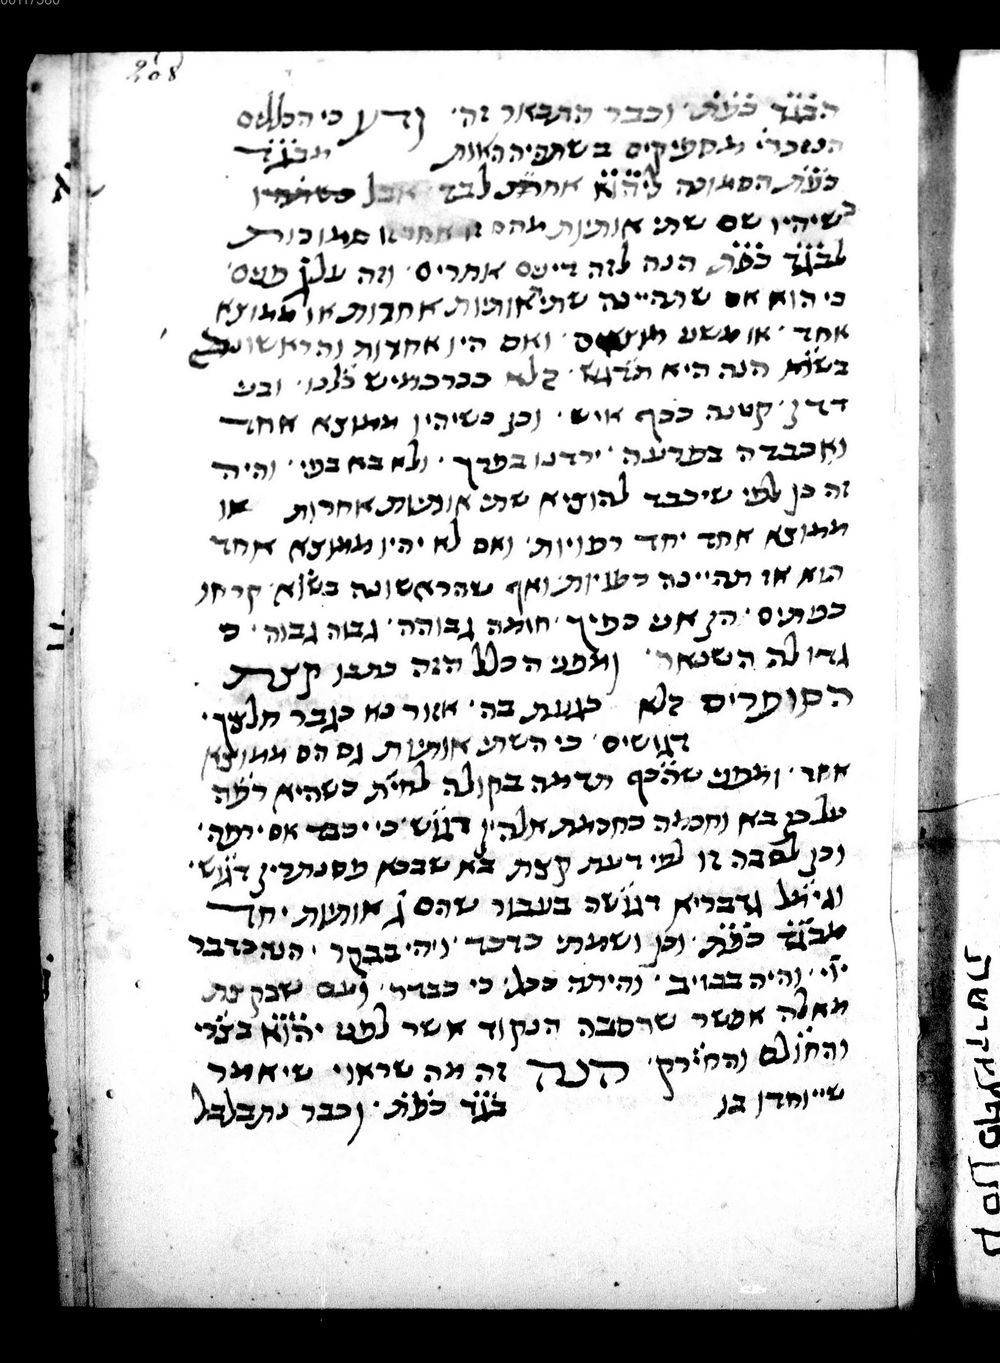 208
הבגד כפת׳ וכבר התבאר זה׳ ודע כי הכללים
הנזכרי׳ מפסיקים בשתהיה האות מבגד
כפת הסמוכה ליהוא אחרת לבד אבל
כשיהיו שם שתי אותיות מהם סמוכות
לבגד כפת הנה לזה דינים אחרים׳ וזה על פנים׳
כי הוא אם שתהיינה שתי אותיות אחדות או ממוצא
אחד׳ או משני מוצאים׳ ואם היו אחדות והראשונה
בשוא הנה היא תדגש׳ הלא ככרכמיש כלנו׳
קטנה ככף איש׳ וכן כשיהיו ממוצא אחד
ואכבדה בפרעה׳ ירדנו בפרך׳ ולא בא בפי׳ והיה
זה כן לפי שיכבד להוציא שתי אותיות אחדות או
ממוצא אחד יחד רפויות׳ ואם לא יהיו ממוצא אחד
הוא או תהיינה רפויות׳ ואף שהראשונה בשוא׳ קרחו
כפתים׳ חומה גבוהה׳ גבוה גבוה׳ כי
גדולה השנאה׳ ומפני הכלל הזה כתבו קצת
הסופרים הלא כגעת בה׳ אזור נא כגבר חלציך׳
דגושים׳ כי השתי אותיות גם הם ממוצא
אחד׳ ומפני שהכף תדמה בקולה לחית כשהיא רפה
על כן בא וחכמה כחכמת אלהין דגוש׳ כי יכבד אם ירפה׳
וכן לסבה זו לפי דעת קצת בא שבכא פסנתרין דגוש׳
וגימל גדבריא דגושה בעבור שהם ג׳ אותיות יחד
מבגד כפת׳ וכן ושמתי כדכד׳ ויהי בבקר׳ הנה כדבר
יי׳ והיה בבוי״ב׳ והיתה ככל׳ כי כבדה׳ ועם שבקצת
מאלה אפשר שהסבה הנקוד אשר לפני יהוא בצרי
והחולם והחירק׳ הנה זה מה שראוי שיאמר
שייוחדו בו בגד כפת׳ וכבר נתבלבל